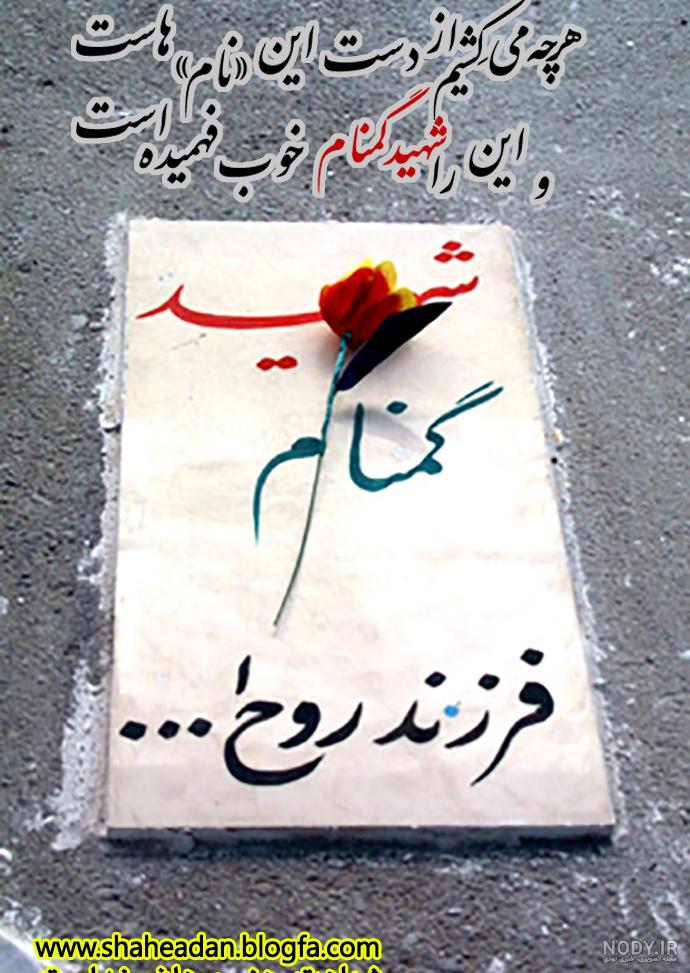 هرچه می کِشیم از دست این «نام» هاست
و این را شهید گمنام خوب فهمیده است
شهید
گمنام
فرزند روح ا...
www.shaheadan.blogfa.com
NODY.IR